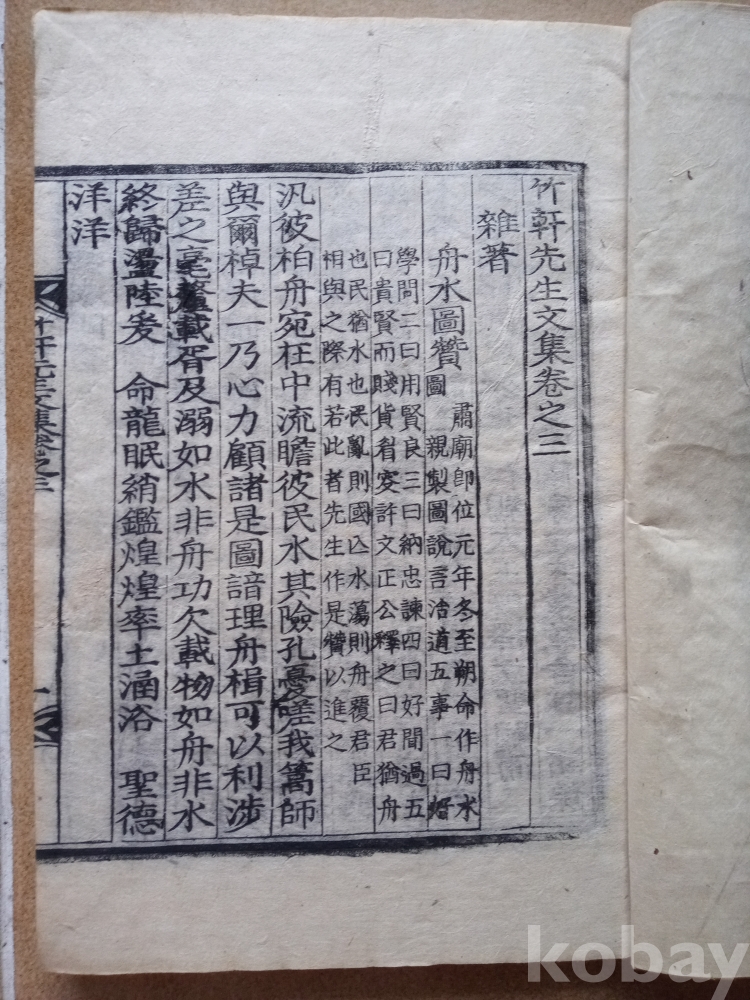 竹軒先生文集卷之三
雜著
舟水圖贊
肅廟卽位元年冬至朔命作舟水
圖親製圖說言治道五事一曰
學問二曰用賢良三曰納忠諫四曰好聞過五
曰貴賢而賤貨看宲許文正公釋之曰君猶舟
也民猶水也民亂則國亾水蕩則舟覆君臣
相與之際有若此者先生作是贊以進之
汎彼柏舟宛在中流瞻彼民水其險孔憂嗟我篙師
與爾棹夫一乃心力顧諸是圖諳理舟楫可以利涉
差之毫釐載胥及溺如水非舟功欠載物如舟非水
終歸盪陸爰 命龍眠綃鑑煌煌率土涵浴 聖德
洋洋
竹軒先生文集卷之三
一
kobay